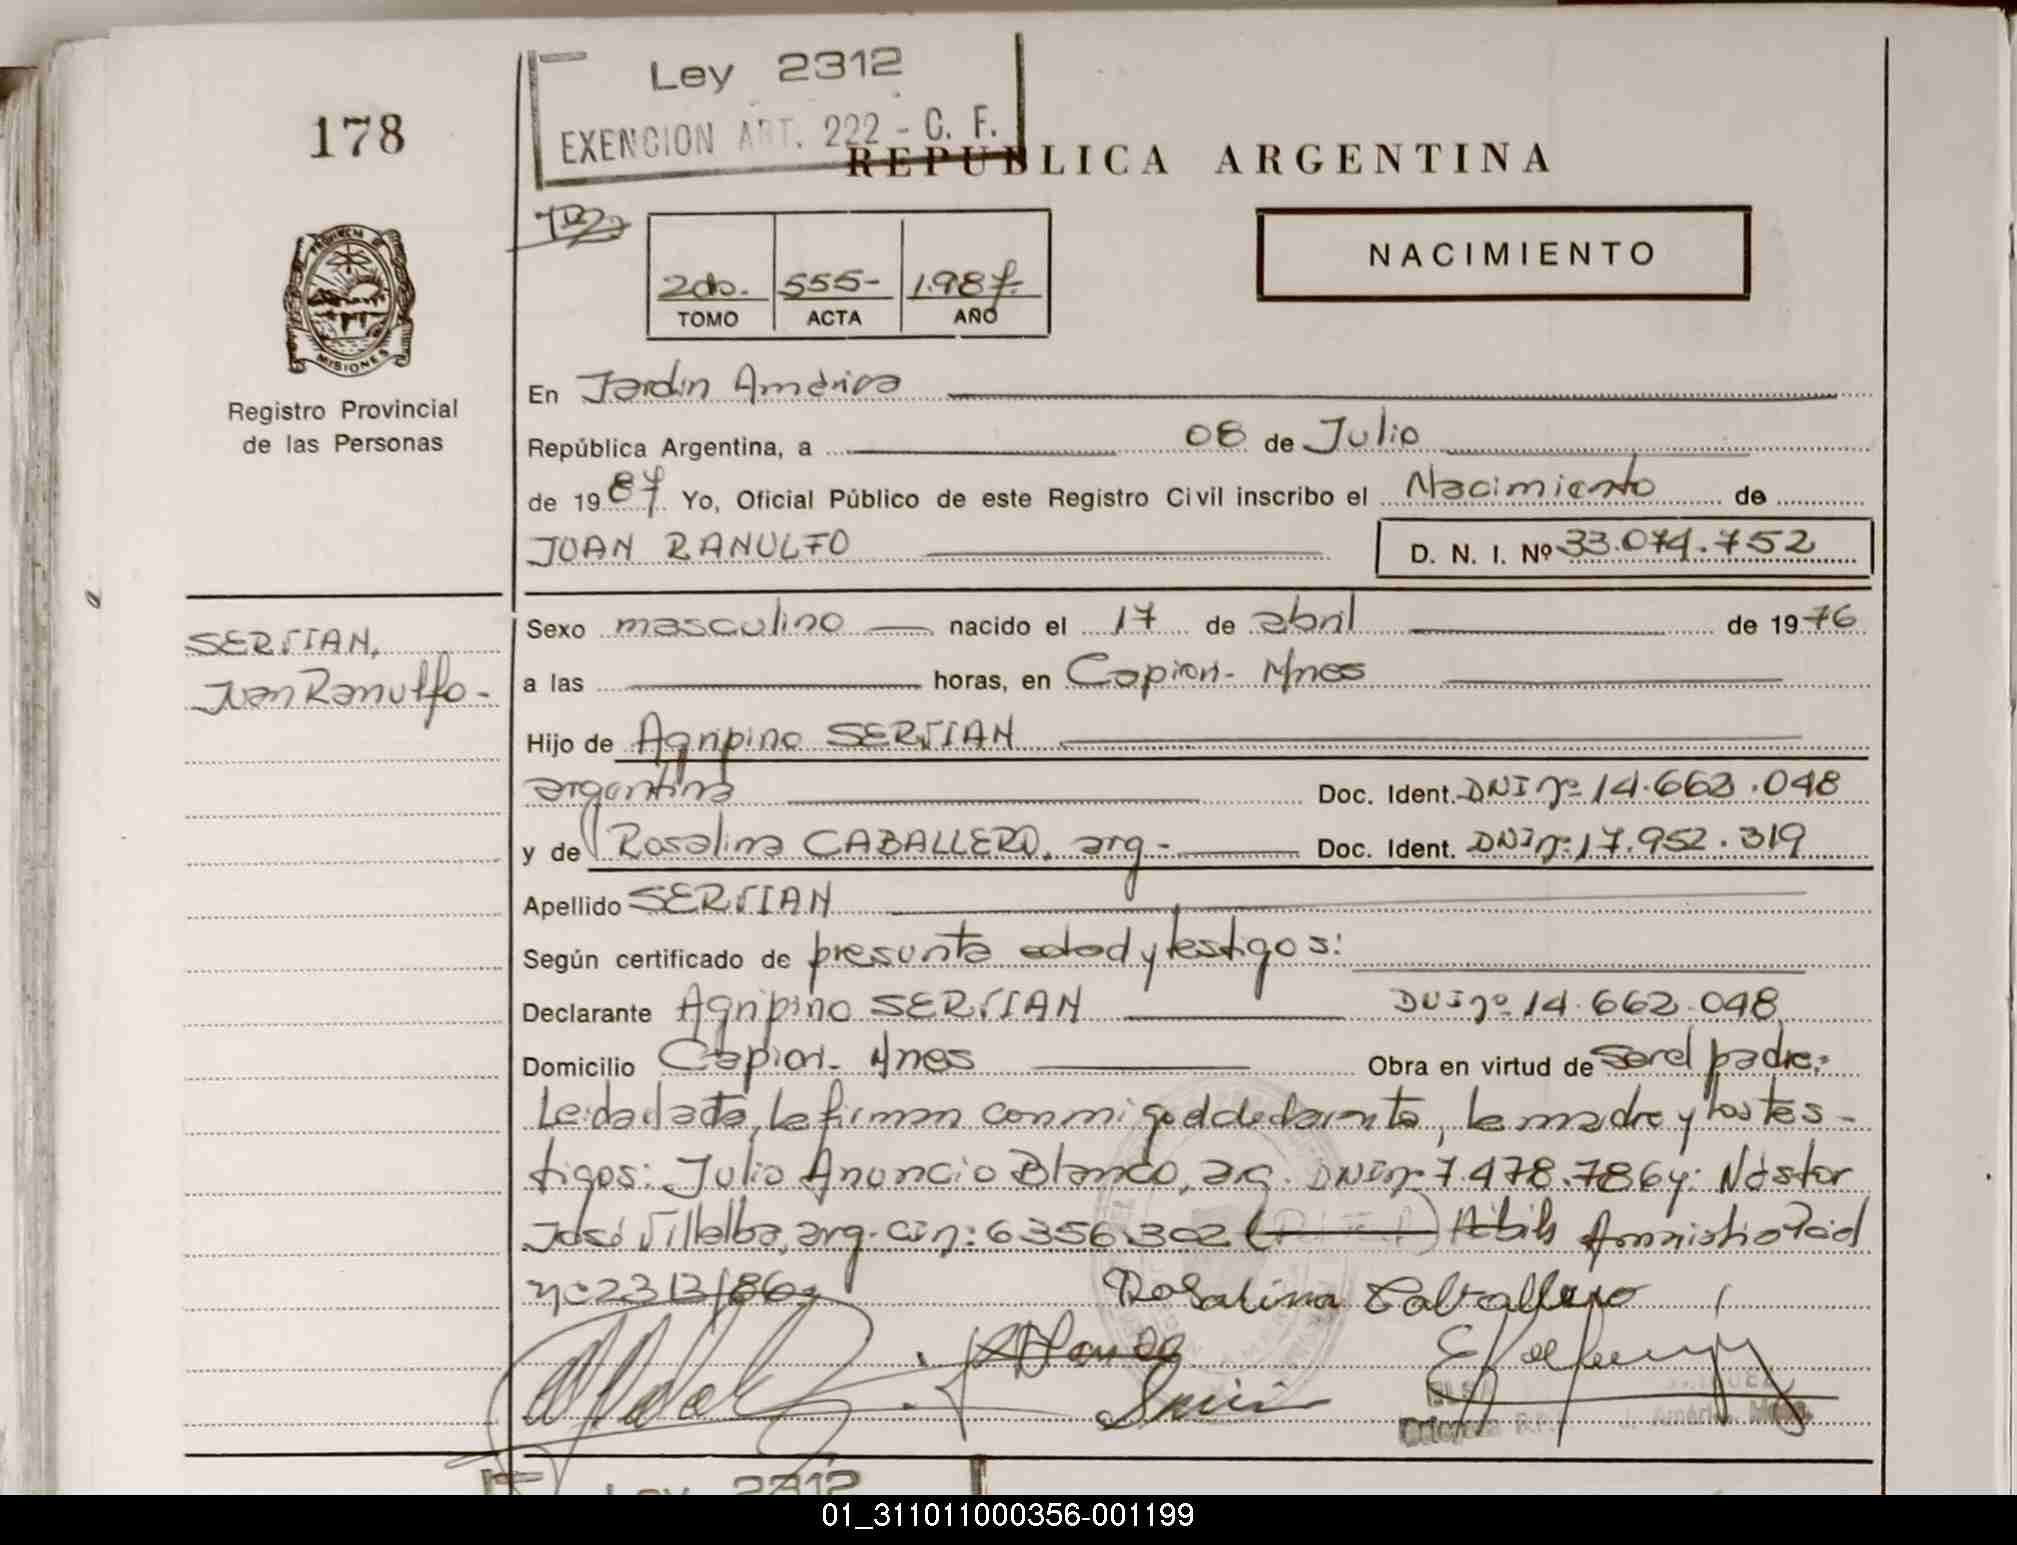 Ley 2312
EXENCION ART. 222 - C. F.
178
REPUBLICA ARGENTINA
NACIMIENTO
2do. 555- 1.987.
TOMO ACTA AÑO
PROVINCIA DE
MISIONES
Registro Provincial
de las Personas
En Jardín América
República Argentina, a 08 de Julio
de 1987. Yo, Oficial Público de este Registro Civil inscribo el Nacimiento de
JUAN RANULFO D. N. I. Nº 33.074.752
SERVIAN,
Juan Ranulfo-
Sexo masculino nacido el 17 de abril de 1976
a las horas, en Capiovi- Mnes
Hijo de Agripino SERVIAN
argentina Doc. Ident. DNI nº 14.662.048
y de Rosalina CABALLERO, arg- Doc. Ident. DNI nº 17.952.319
Apellido SERVIAN
Según certificado de presunta edad y testigos:
Declarante Agripino SERVIAN DNI nº 14.662.048
Domicilio Capiovi- Mnes Obra en virtud de ser el padre.-
Leida el acta, la firman conmigo el declarante, la madre y los tes-
tigos: Julio Anuncio Blanco, arg. DNI nº 7.478.786 y: Néstor
José Villalba, arg. CI nº: 6356.302
nº 2312/86
Rosalina Caballero
Ley 2312
01_311011000356-001199